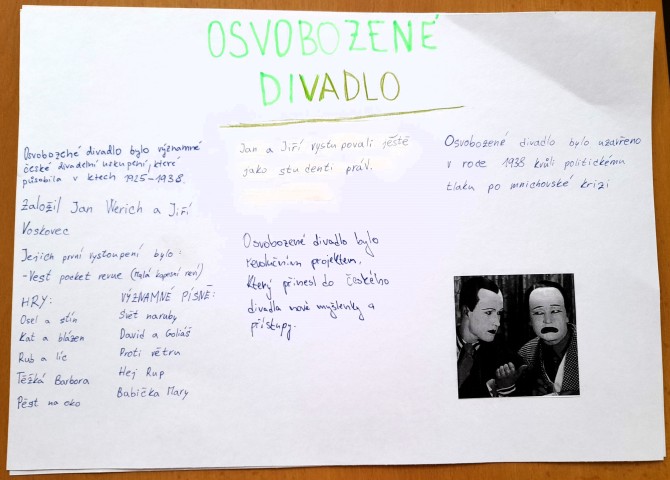 OSVOBOZENÉ
DIVADLO
Osvobozené divadlo bylo významné
české divadelní uskupení, které
působila v letech 1925-1938.
Založil Jan Werich a Jiří
Voskovec
Jejich první vystoupení bylo:
-Vest pocket revue (malá kapesní revi)
HRY:
Osel a stín
Kat a blázen
Rub a líc
Těžká Barbora
Pěst na oko
VÝZNAMNÉ PÍSNĚ:
Svět naruby
David a Goliáš
Proti větru
Hej Rup
Babička Mary
Jan a Jiří vystupovali jěště
jako studenti práv.
Osvobozené divadlo bylo
revolučním projektem,
který přinesl do českého
divadla nové myšlenky a
přístupy.
Osvobozené divadlo bylo uzavřeno
v roce 1938 kvůli politickému
tlaku po mnichovské krizi